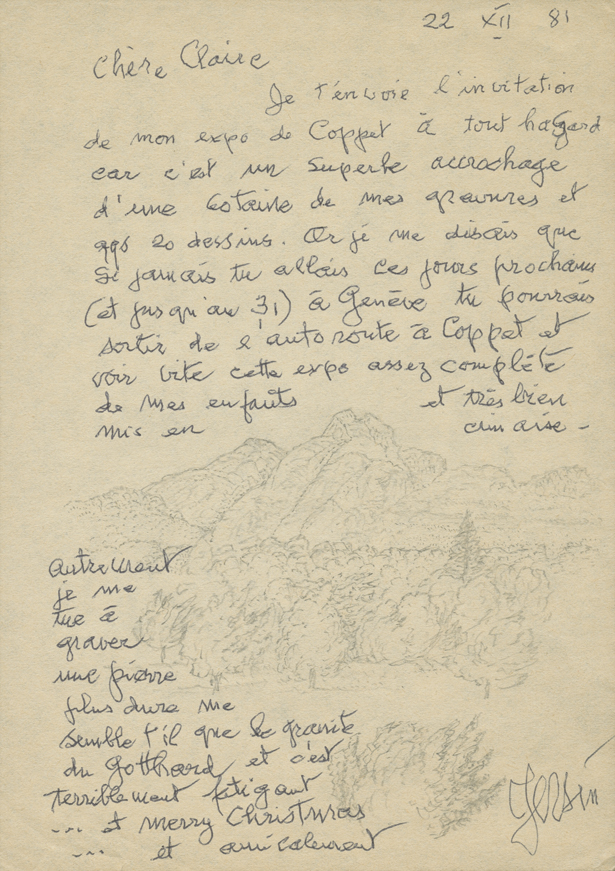 22 XII 81
Chère Claire
Je t'envoie l'invitation
de mon expo de Coppet à tout hasard
car c'est un superbe accrochage
d'une 60taine de mes gravures et
qqs 20 dessins. Or je me disais que
si jamais tu allais ces jours prochains
(et jusqu'au 31) à Genève tu pourrais
sortir de l'autoroute à Coppet et
voir vite cette expo assez complète
de mes enfants et très bien
mis en cimaise -
autrement
je me
tue à
graver
une pierre
plus dure me
semble t'il que le granite
du Gotthard et c'est
terriblement fatigant
... et merry Christmas
... et amicalement